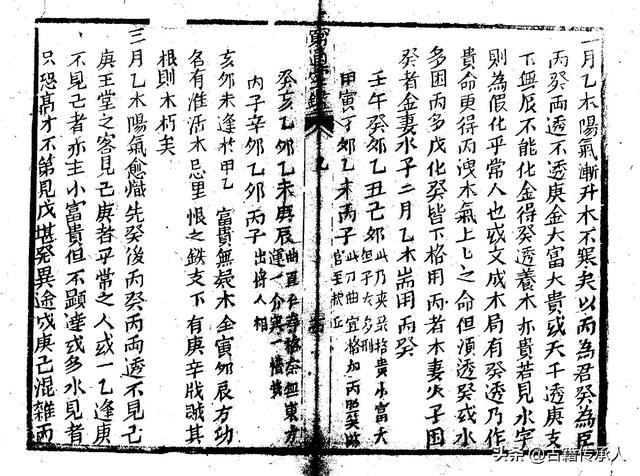 二月乙木陽氣漸升木不寒矣以丙為君癸為臣
丙癸兩透不透庚金大富大貴或天干透庚支
下無辰不能化金得癸透養木亦貴若見水字
則為假化平常人也或支成木局有癸透乃作
貴命更得丙洩木氣上上之命但須透癸或水
多困丙多戊化癸皆下格用丙者木妻火子用
癸者金妻水子二月乙木耑用丙癸
壬午癸卯乙丑己卯 此乃 格貴小富大 但子 多刑
甲寅丁卯乙未丙子 此乃曲直格加丙 官至
寳通
乙
癸亥乙卯乙未庚辰 曲直 格 無東方 運一介寒
丙子辛卯乙卯丙子 出將入相
亥卯未逢於甲乙 富貴無疑木全寅卯辰方功
名有准活木忌里恨之鉄支下有庚辛戕賊其
根則木朽矣
三月乙木陽氣愈熾先癸後丙癸丙兩透不見己
庚玉堂之客見己庚者平常之人或一乙逢庚
不見己者亦主小富貴但不顯達或多水見者
只恐高才不第見戊堪發異途或庚己混雜丙
头条@古籍传承人